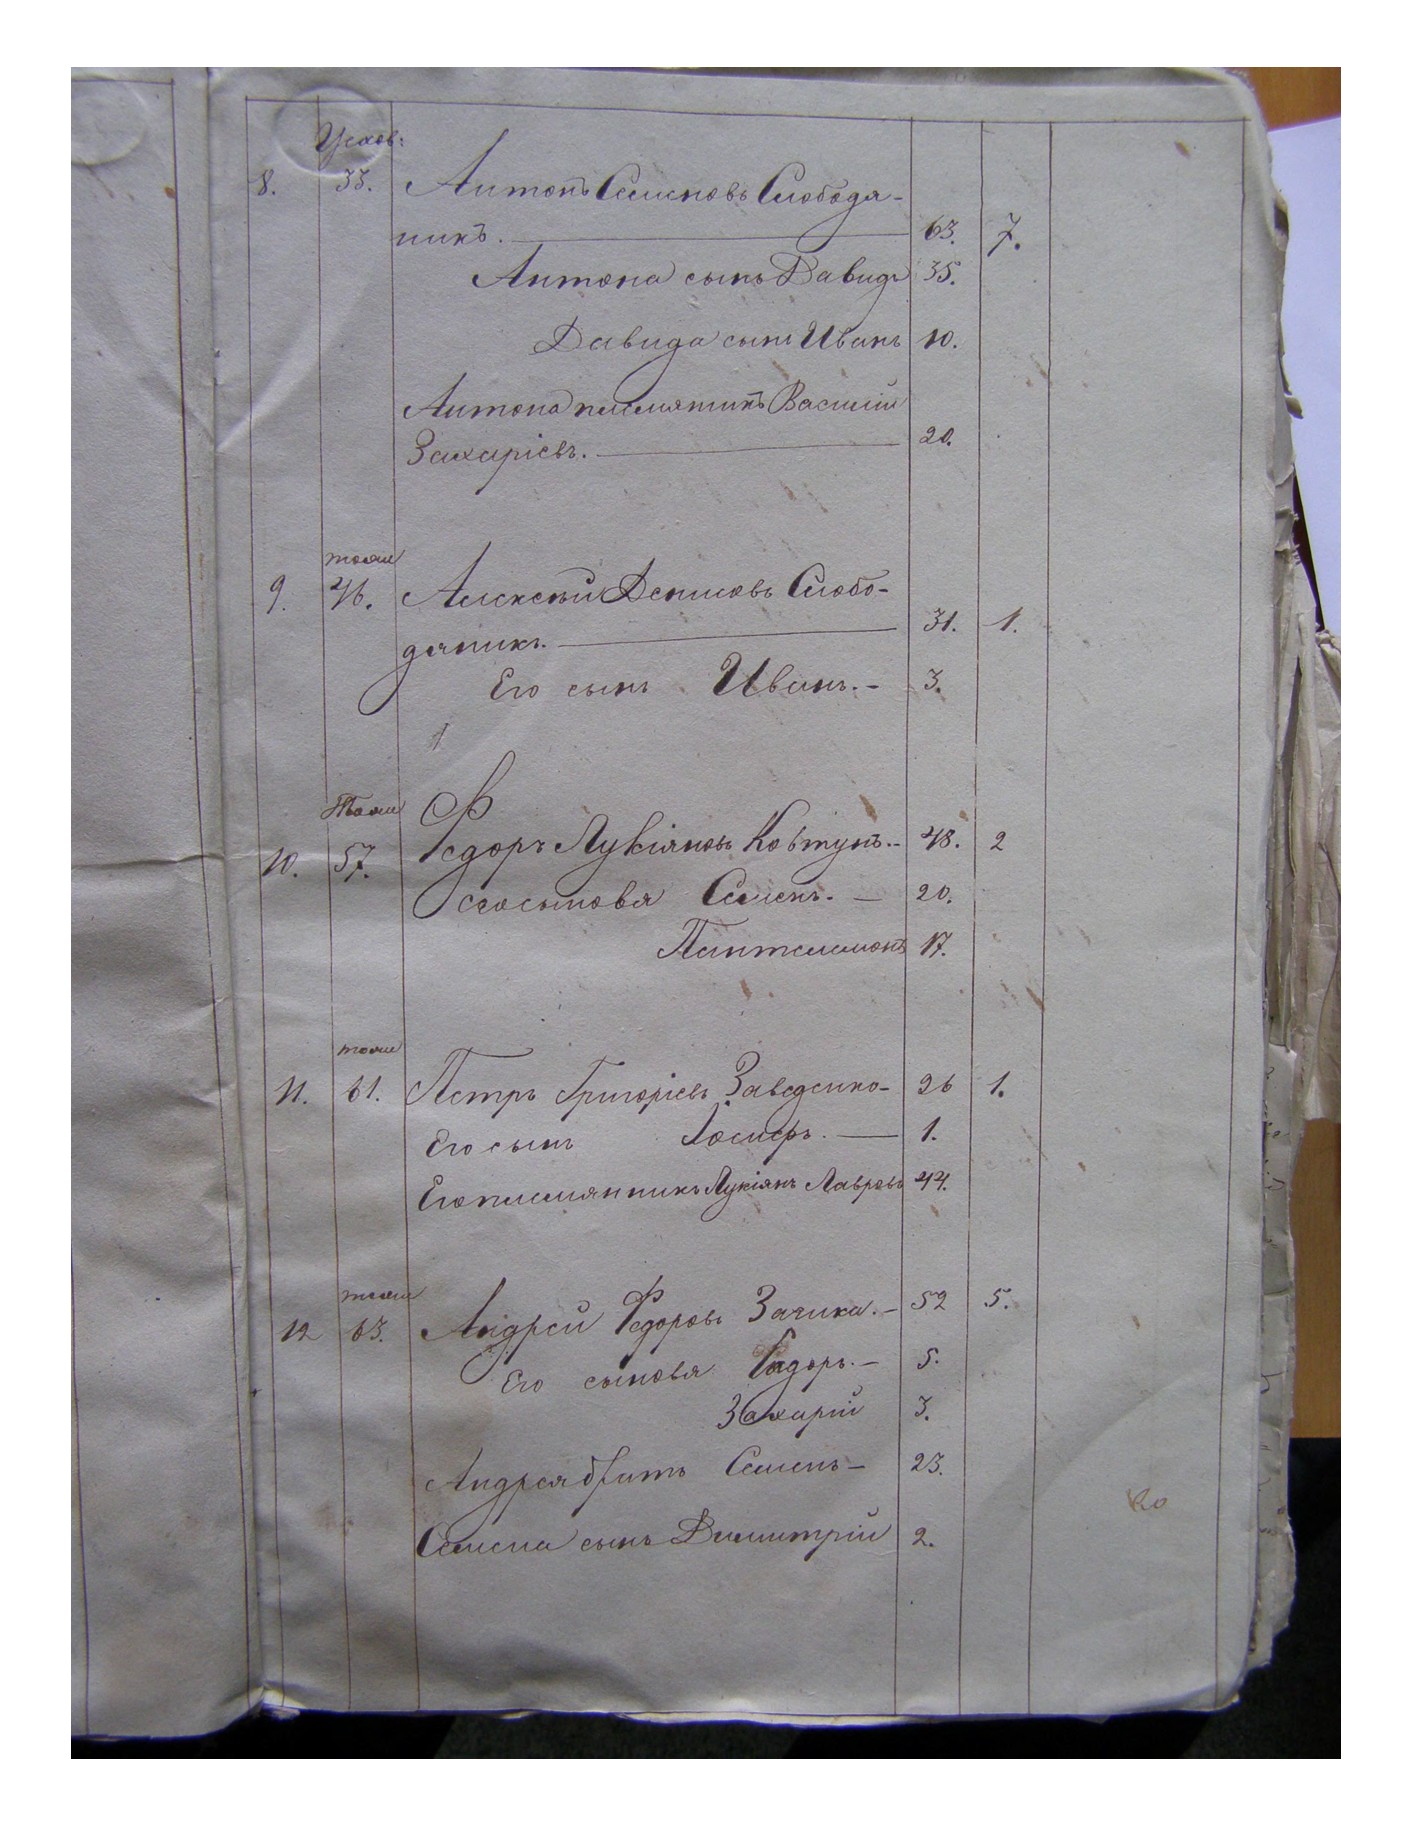 Усков:
8. 33. Антонъ Семеновъ Слободя-
никъ. 63. 7.
Антона сынъ Давидъ 35.
Давида сынъ Иванъ 10.
Антона племятникъ Василий
Захаріевъ. 20.
тоже
9. 46. Алексѣй Денисовъ Слобо-
дяникъ. 31. 1.
Его сынъ Иванъ. 3.
тоже
10. 57. Федоръ Лукіяновъ Ковтунъ. 48. 2
его сыновья Семенъ. 20.
Пантелимонъ 17.
тоже
11. 61. Петръ Григоріевъ Заведенко 26 1.
Его сынъ Іосифъ. 1.
Его племянникъ Лукіянъ Лавровъ 44.
тоже
12 63. Андрей Федоровъ Зачика. 52 5.
Его сыновья Федоръ. 5.
Захарій 3.
Андрея братъ Семенъ 23.
Семена сынъ Димитрій 2.